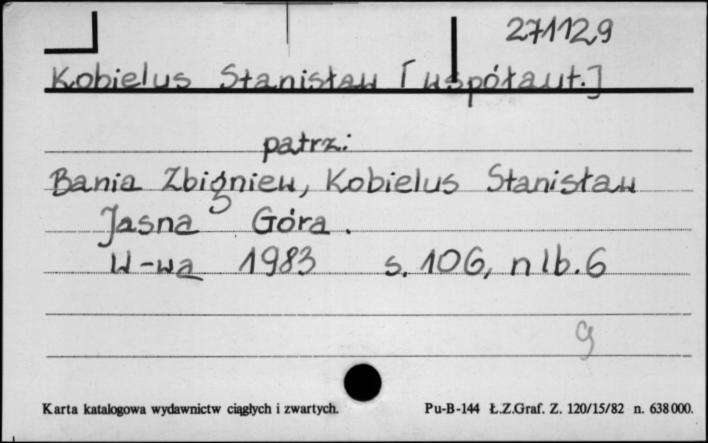 271129
Kobielus Stanisław [współaut.]
patrz:
Bania Zbigniew, Kobielus Stanisław
Jasna Góra.
W-wa 1983 s. 106, nlb. 6
9
Karta katalogowa wydawnictw ciągłych i zwartych. Pu-B-144 Ł.Z.Graf. Z. 120/15/82 n. 638000.